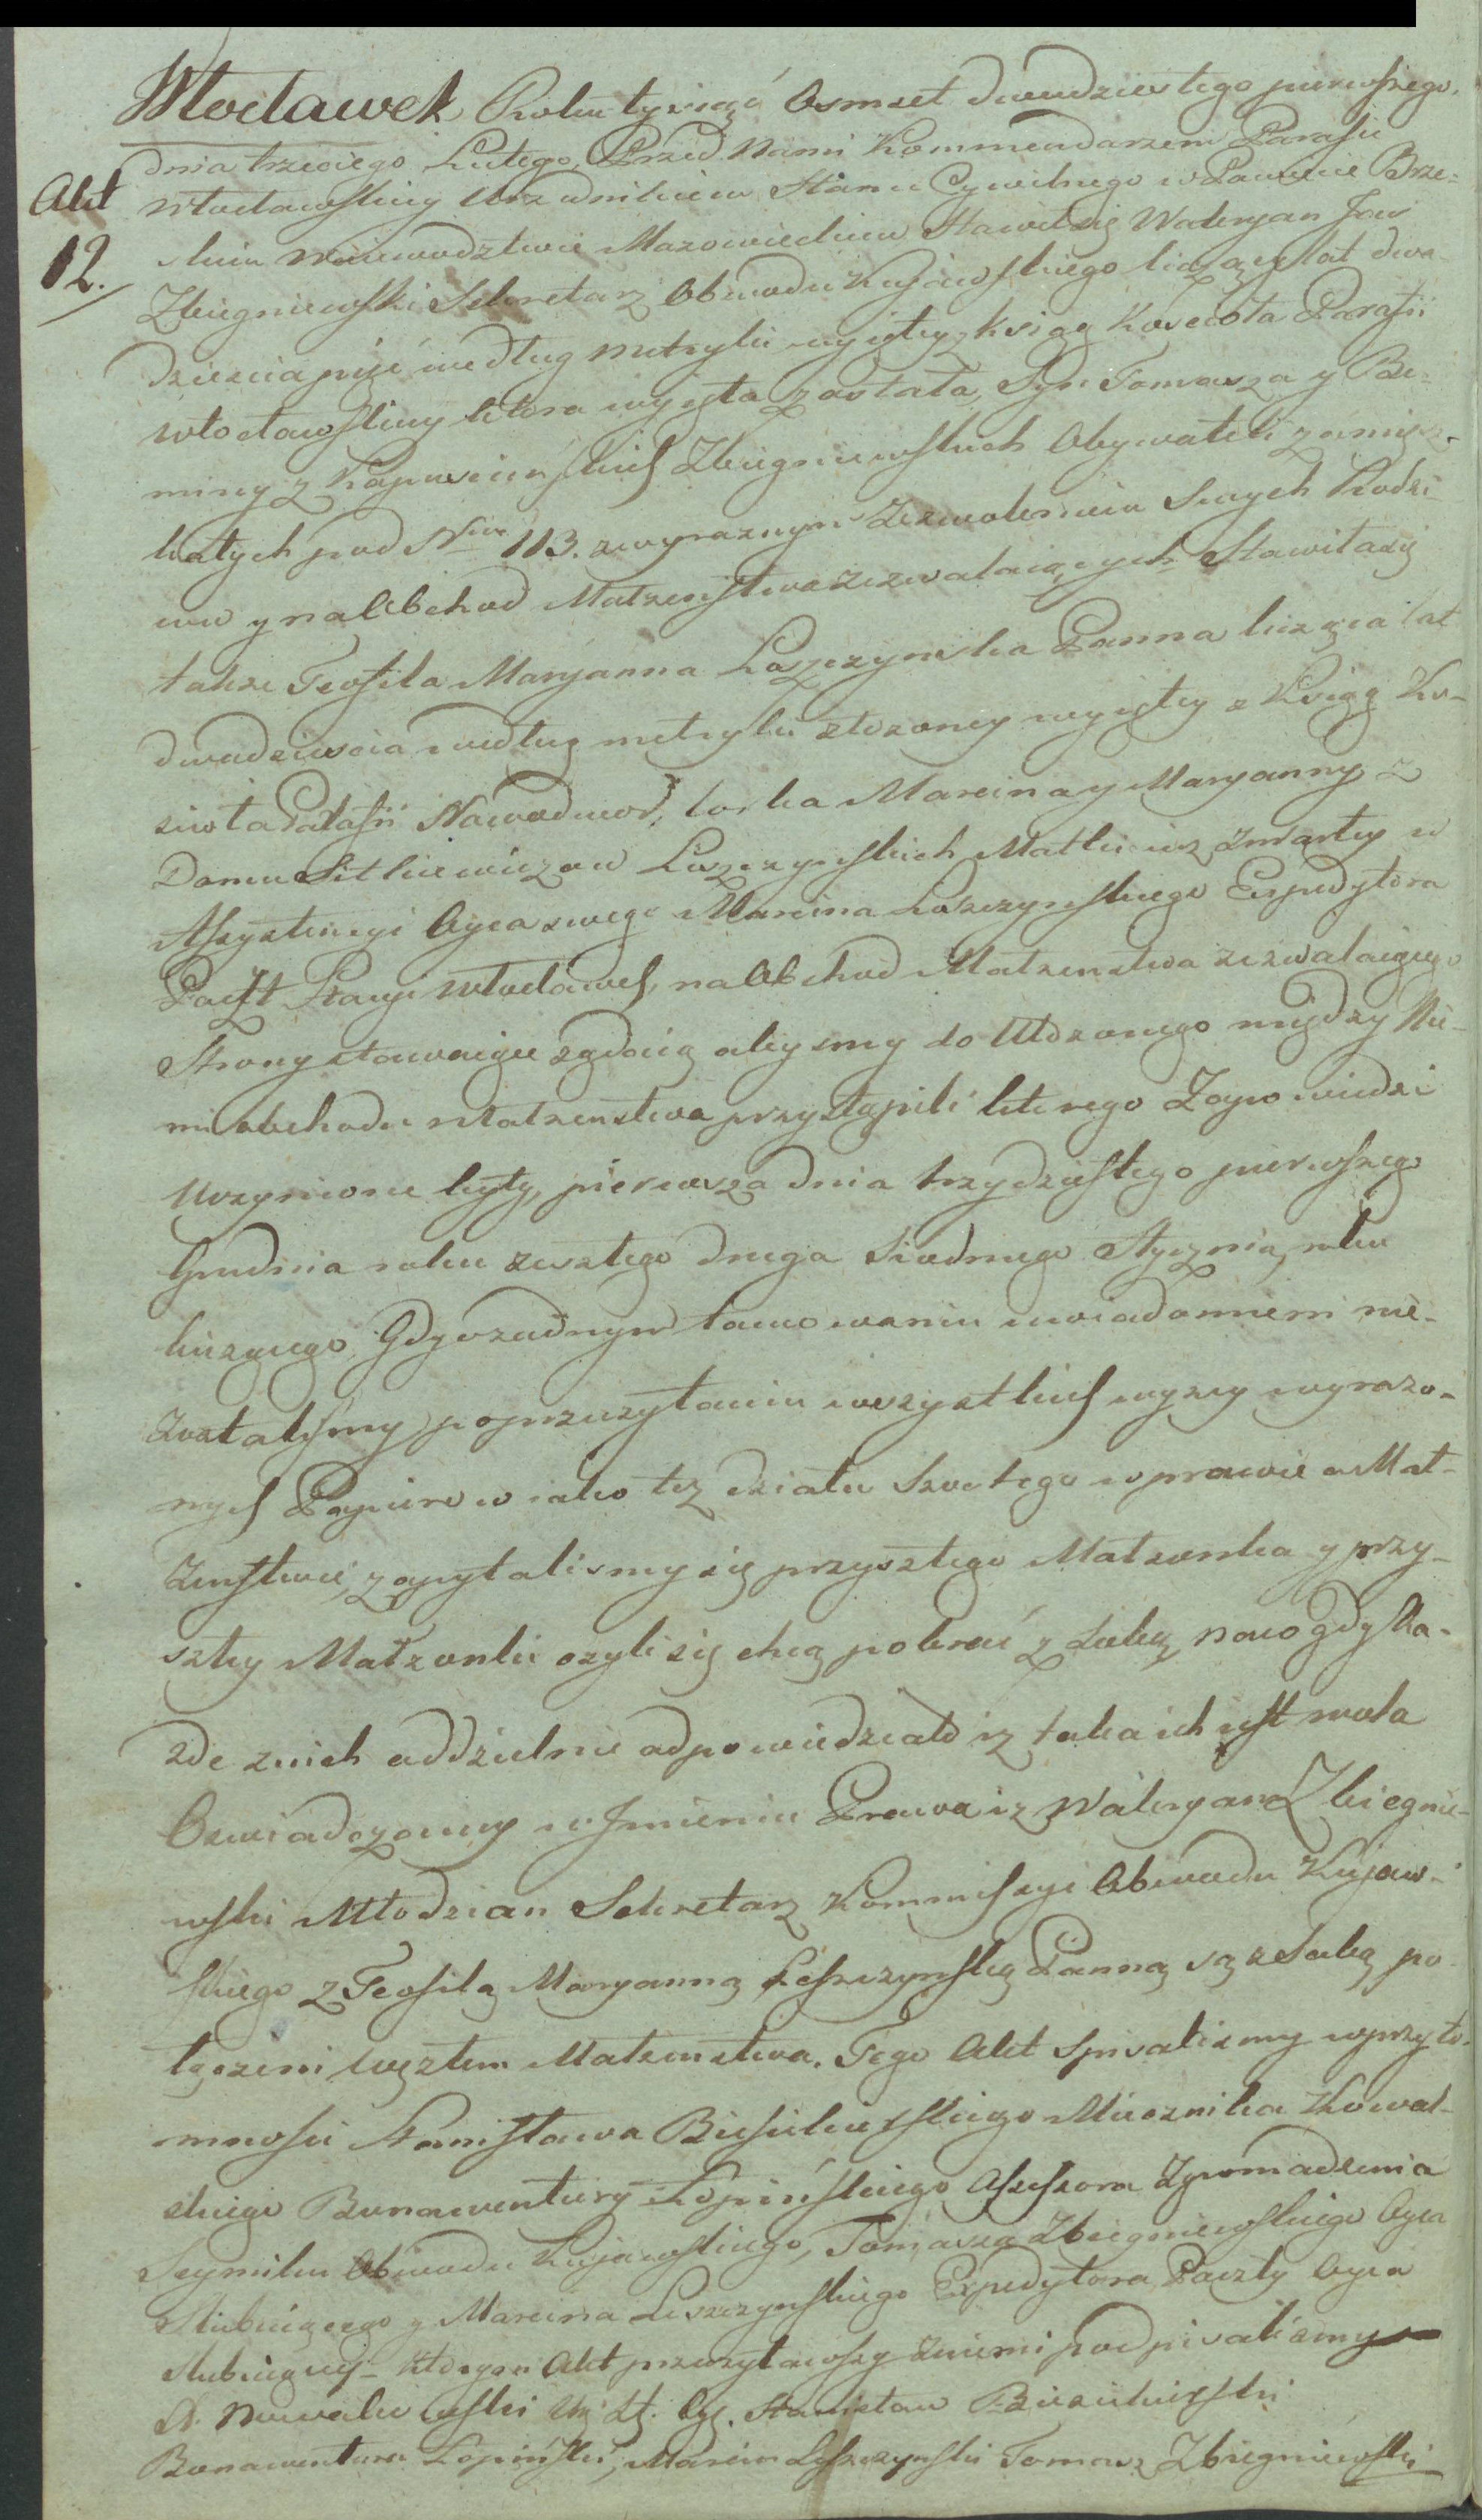 Włocławek Roku tysiąć Osmset dwudziestego pierwszego,
dnia trzeciego Lutego, Przed Nami Kommendarzem Parafii
Akt
Włocławskiey Urzędnikiem Stanu Cywilnego w Powiecie Brze-
12.
skim Woiewodztwie Mazowieckim Stawił się Waleryan
Zbiegniewski Sekretarz Obwodu Kujawskiego liczący lat dwa-
dzieścia pięć według metryki wyiętey z ksiąg Kościoła Parafii
Włocławskiey ktora wyięta została, Syn Tomasza y
z Kapuscińskich Zbiegniewskich Obywateli zamiesz-
kałych pod Nrem 113. z wyraznym Zezwoleniem Swych Rodzi-
cow y na Obchod Małzeństwa zezwalaiących Stawiła się
takze Teofila Maryanna Leszczynska Panna licząca lat
dwadzieścia według metryki złożoney wyiętey z Ksiąg Ko-
scioła Parafii Corka Marcina y Maryanny z
Domu Sitkiewiczow Leszczynskich Matki iuz zmarłey w
Assystencyi Oyca swego Marcina Leszczynskiego Expedytora
Poczt Stacyi Włocławek, na Obchod Małzenstwa zezwalaiącego
Strony stawaiące żądaią abysmy do Ułożonego między Nie-
mi obchodu Małzenstwa przystąpili ktorego Zapowiedzi
Uczynione były, pierwsza dnia trzydziestego pierwszego
Grudnia roku zeszłego druga Siodmego Stycznia, roku
biezącego. Gdy o zadnym tamowaniu uwiadomieni nie-
zostalismy, po przeczytaniu wszystkich wyzey wyrazo-
nych Papierow iako tez działu Szostego w prawie o Mał-
zeństwie, zapytalismy się przyszłego Małzonka y przy-
szłey Małzonki czyli się chcą pobrać z Sobą, na co gdy Ka-
zde z nich oddzielnie odpowiedziało iz taka ich iest wola
Oswiadczamy w Imieniu Prawa iz Waleryan Zbiegnie-
wski Młodzian Sekretarz Kommissyi Obwodu Kujaw-
skiego z Teofilą Maryanną Leszczynską Panną są z Sobą po-
łączeni węzłem Małzenstwa. Tego Akt Spisalismy w przyto-
mnosci Stanisława Biesiekierskiego Miecznika Kowal-
skiego Bonawentury Łępińskiego Assessora Zgromadzenia
Seymiku Obwodu Kujawskiego, Tomasza Zbiegniewskiego Oyca
Slubuiącego y Marcina Leszczynskiego Expedytora Poczty Oyca
Slubuiącey – Ktorzy Akt przeczytawszy z niemi podpisalismy
St. Cyw. Stanisław Biesiekierski
Bonawentura Łępiński, Marcin Leszczynski Tomasz Zbiegniewski